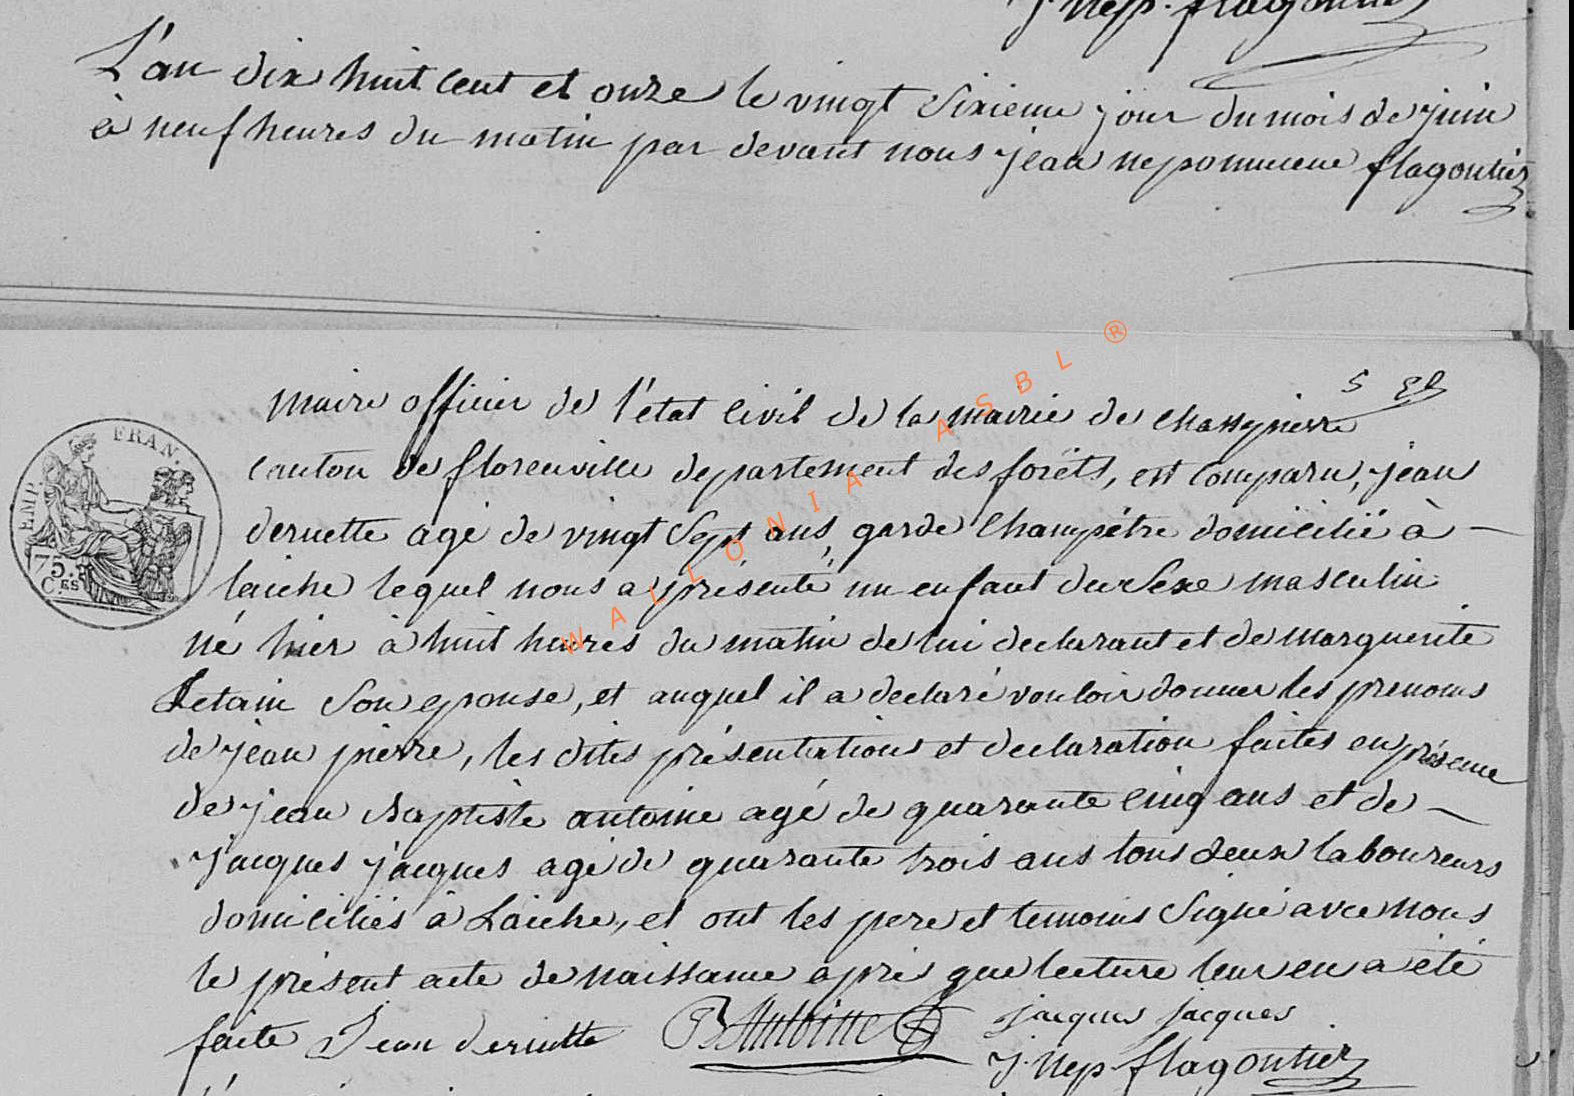 J. Nep. flagontier
L'an dix huit cent et onze le vingt sixieme jour du mois de juin
à neuf heures du matin par devant nous jean nepomucene flagontier
5 
maire officier de l'état civil de la mairie de chassepierre
canton de florenville departement des forêts, est comparu, jean
deruette agé de vingt sept ans, garde champêtre domicilié à
laiche lequel nous a présenté un enfant du sexe masculin
né hier à huit heures du matin de lui declarant et de marguerite
Letain son epouse, et auquel il a declaré vouloir donner les prenoms
de jean pierre, les dites présentations et declaration faites en présence
de jean baptiste antoine agé de quarante cinq ans et de
jacques jacques agé de quarante trois ans tous deux laboureurs
domiciliés à Laiche, et ont les pere et temoins signé avec nous
le présent acte de naissance aprés que lecture leur en a été
faite Jean deruette B Antoine jacques jacques
J. Nep flagontier
EMP. FRAN.
75. C.ES
WALLONIA ASBL ®